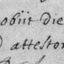 obiit die
attestor